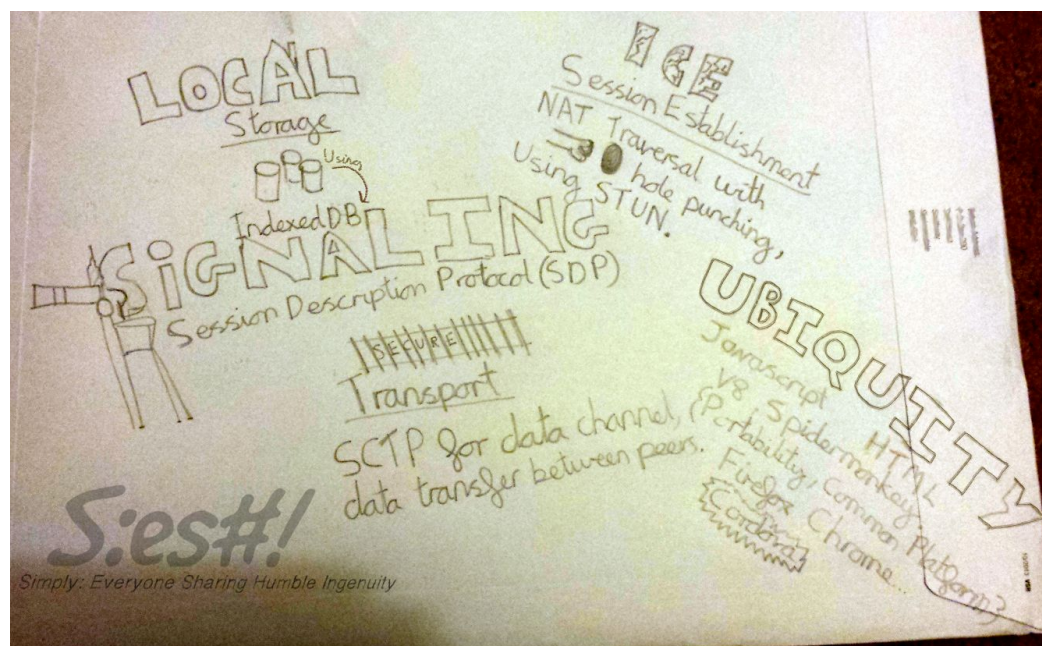 LOCAL
Storage
Using
IndexedDB
ICE
Session Establishment
NAT Traversal with
hole punching,
Using STUN.
SiGNALING
Session Description Protocol (SDP)
SECURE
Transport
SCTP for data channel,
data transfer between peers.
UBIQUITY
Javascript HTML
V8 Spidermonkey
(Portability, Common Platform?
Firefox Chrome...
Cordova
S:es#!
Simply: Everyone Sharing Humble Ingenuity